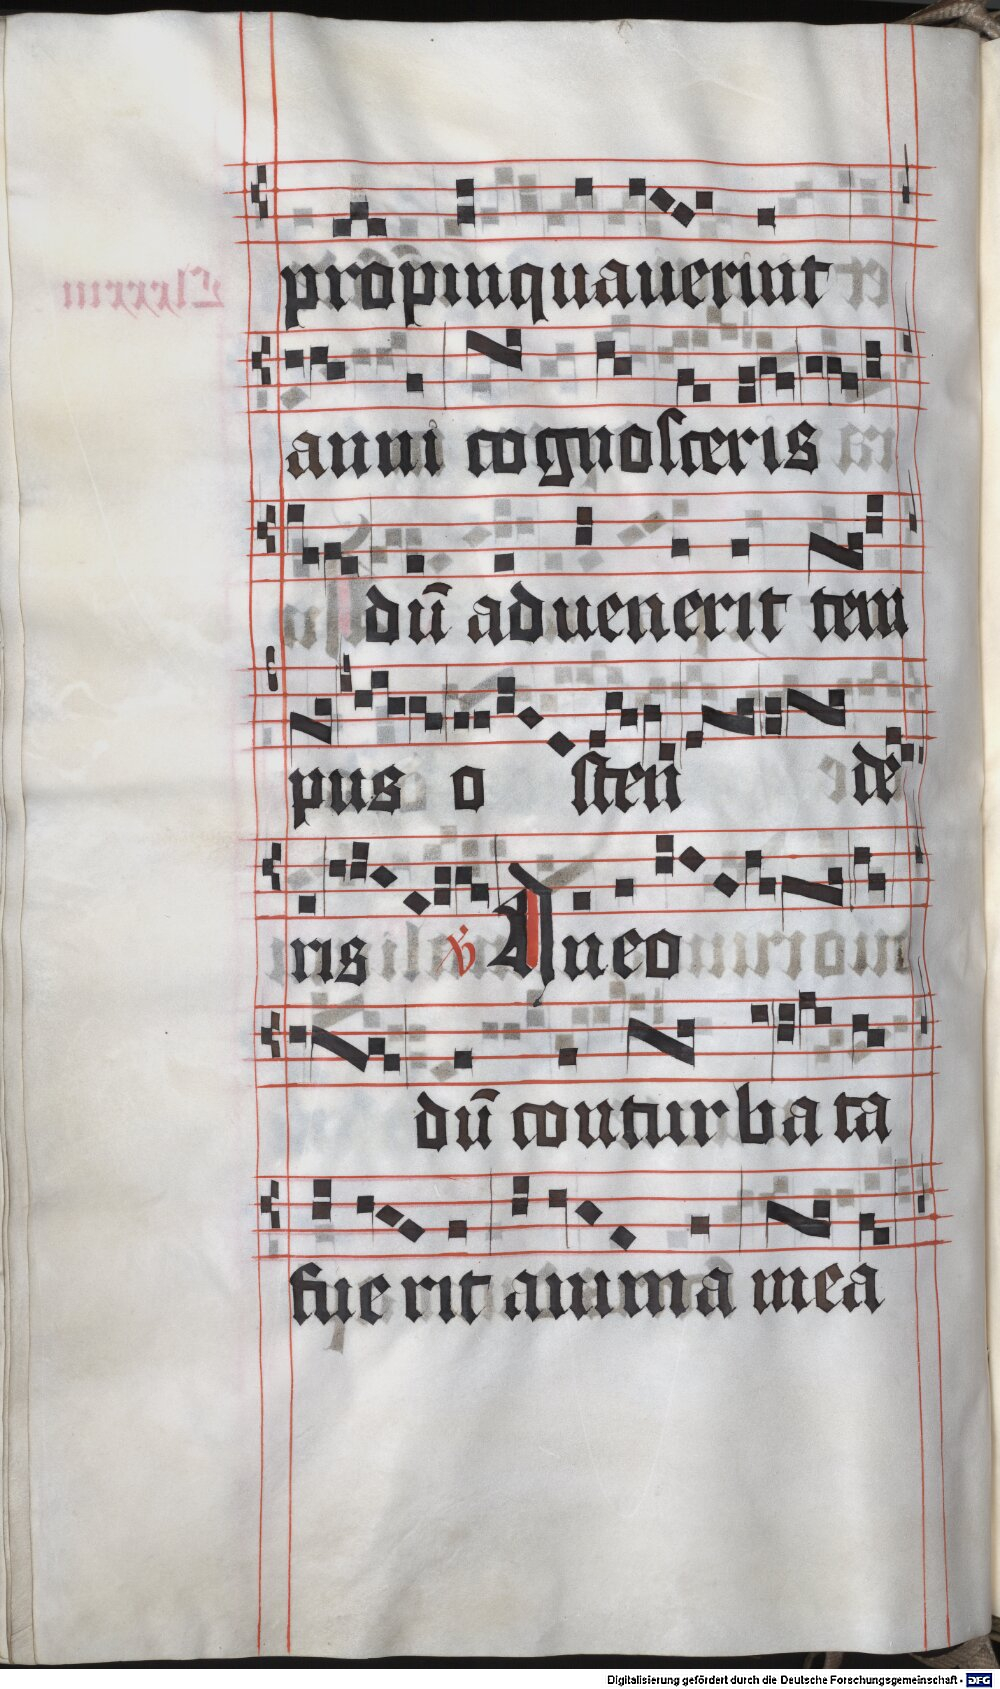 propinquauerint
anni cognosceris
dū aduenerit tem
pus o stēn de
ris ℣ In eo
dū conturbata
fuerit anima mea
Digitalisierung gefördert durch die Deutsche Forschungsgemeinschaft - DFG